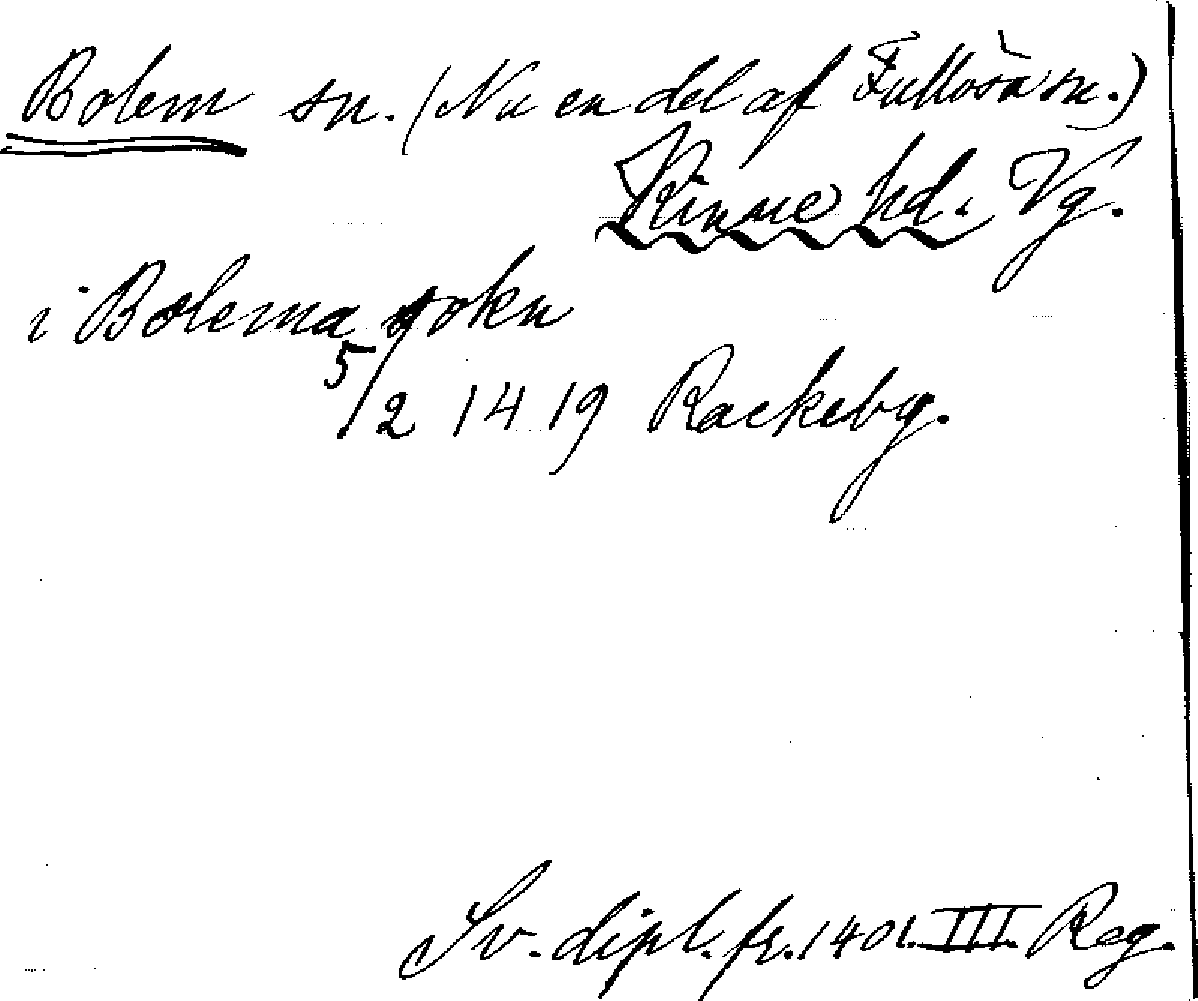 Bolem sn. (Nu en del af Fullösa sn.)
Kinne hd. Vg.
i Bolema sokn
5/2 1419 Rackeby.
Sv. dipl. fr. 1401. III. Reg.